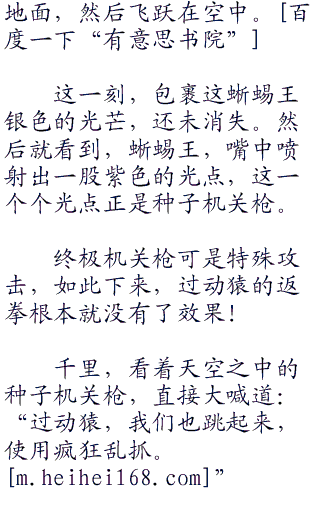 地面，然后飞跃在空中。[百
度一下“有意思书院”]
这一刻，包裹这蜥蜴王
银色的光芒，还未消失。然
后就看到，蜥蜴王，嘴中喷
射出一股紫色的光点，这一
个个光点正是种子机关枪。
终极机关枪可是特殊攻
击，如此下来，过动猿的返
拳根本就没有了效果！
千里，看着天空之中的
种子机关枪，直接大喊道：
“过动猿，我们也跳起来，
使用疯狂乱抓。
[m.heihei168.com]”